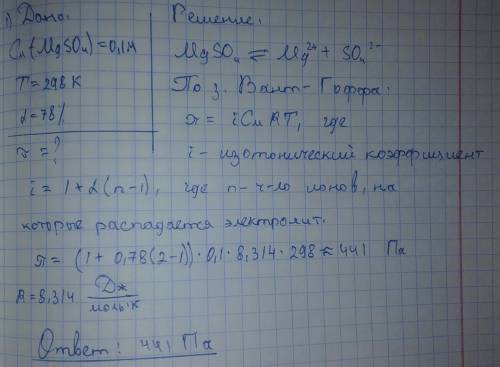 1) Дано:
Cм(MgSO4)=0,1М
T=298 К
α=78%
π=?
Решение:
MgSO4 ⇌ Mg2+ + SO4 2-
По з. Вант-Гоффа:
π = iCмRT, где
i - изотонический коэффициент
i = 1+α(n-1), где n-ч-ло ионов, на
которые распадается электролит.
π= (1+ 0,78(2-1))·0,1·8,314·298≈441 Па
R=8,314 Дж/моль·К
Ответ: 441 Па